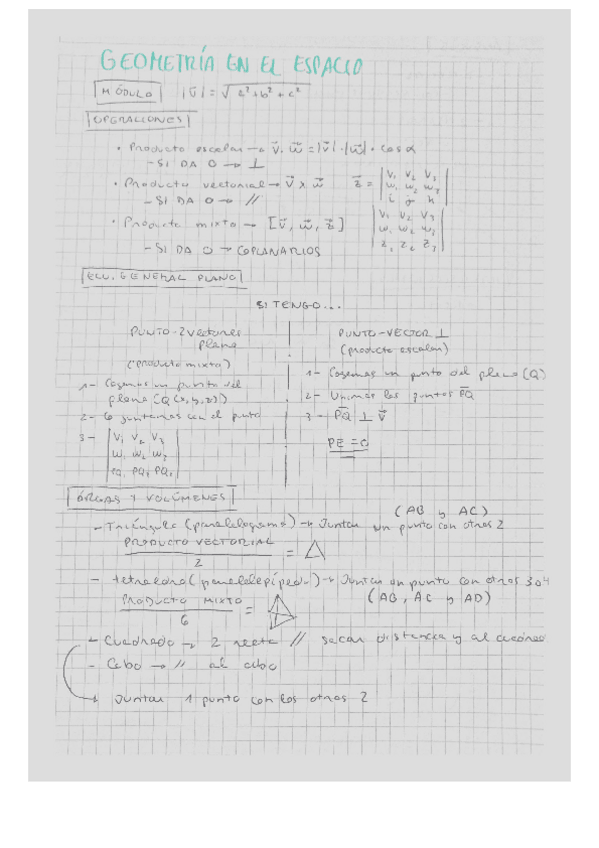 GEOMETRÍA EN EL ESPACIO
MÓDULO |v⃗| = √a²+b²+c²
OPERACIONES
• Producto escalar → v⃗. w⃗ = |v⃗| · |w⃗| · cos α
- SI DA 0 → ⊥
• Producto vectorial → v⃗ x w⃗ z⃗ = | V₁ V₂ V₃
W₁ W₂ W₃
i j k |
- SI DA 0 → //
• Producto mixto → [v⃗, w⃗, z⃗] | V₁ V₂ V₃
W₁ W₂ W₃
Z₁ Z₂ Z₃ |
- SI DA 0 → COPLANARIOS
ECU. GENERAL PLANO
SI TENGO...
PUNTO - 2 vectores
plano
(producto mixto)
1- Cogemos un punto del
plano (Q(x,y,z))
2- juntamos con el punto
3- | V₁ V₂ V₃
W₁ W₂ W₃
PQ₁ PQ₂ PQ₃ |
PUNTO - VECTOR ⊥
(producto escalar)
1- Cogemos un punto del plano (Q)
2- Unimos los puntos PQ
3- PQ ⊥ v⃗
PE = 0
ÁREAS Y VOLÚMENES
(AB y AC)
- Triángulo (paralelogramo) → Juntar un punto con otros 2
PRODUCTO VECTORIAL
2 =
- tetraedro (paralelepípedo) → Juntar un punto con otros 3 o 4
PRODUCTO MIXTO
6 = (AB, AC y AD)
- Cuadrado → 2 recta // sacar distancia y al cuadrado
- Cubo → // al cubo
→ Juntar 1 punto con los otros 2